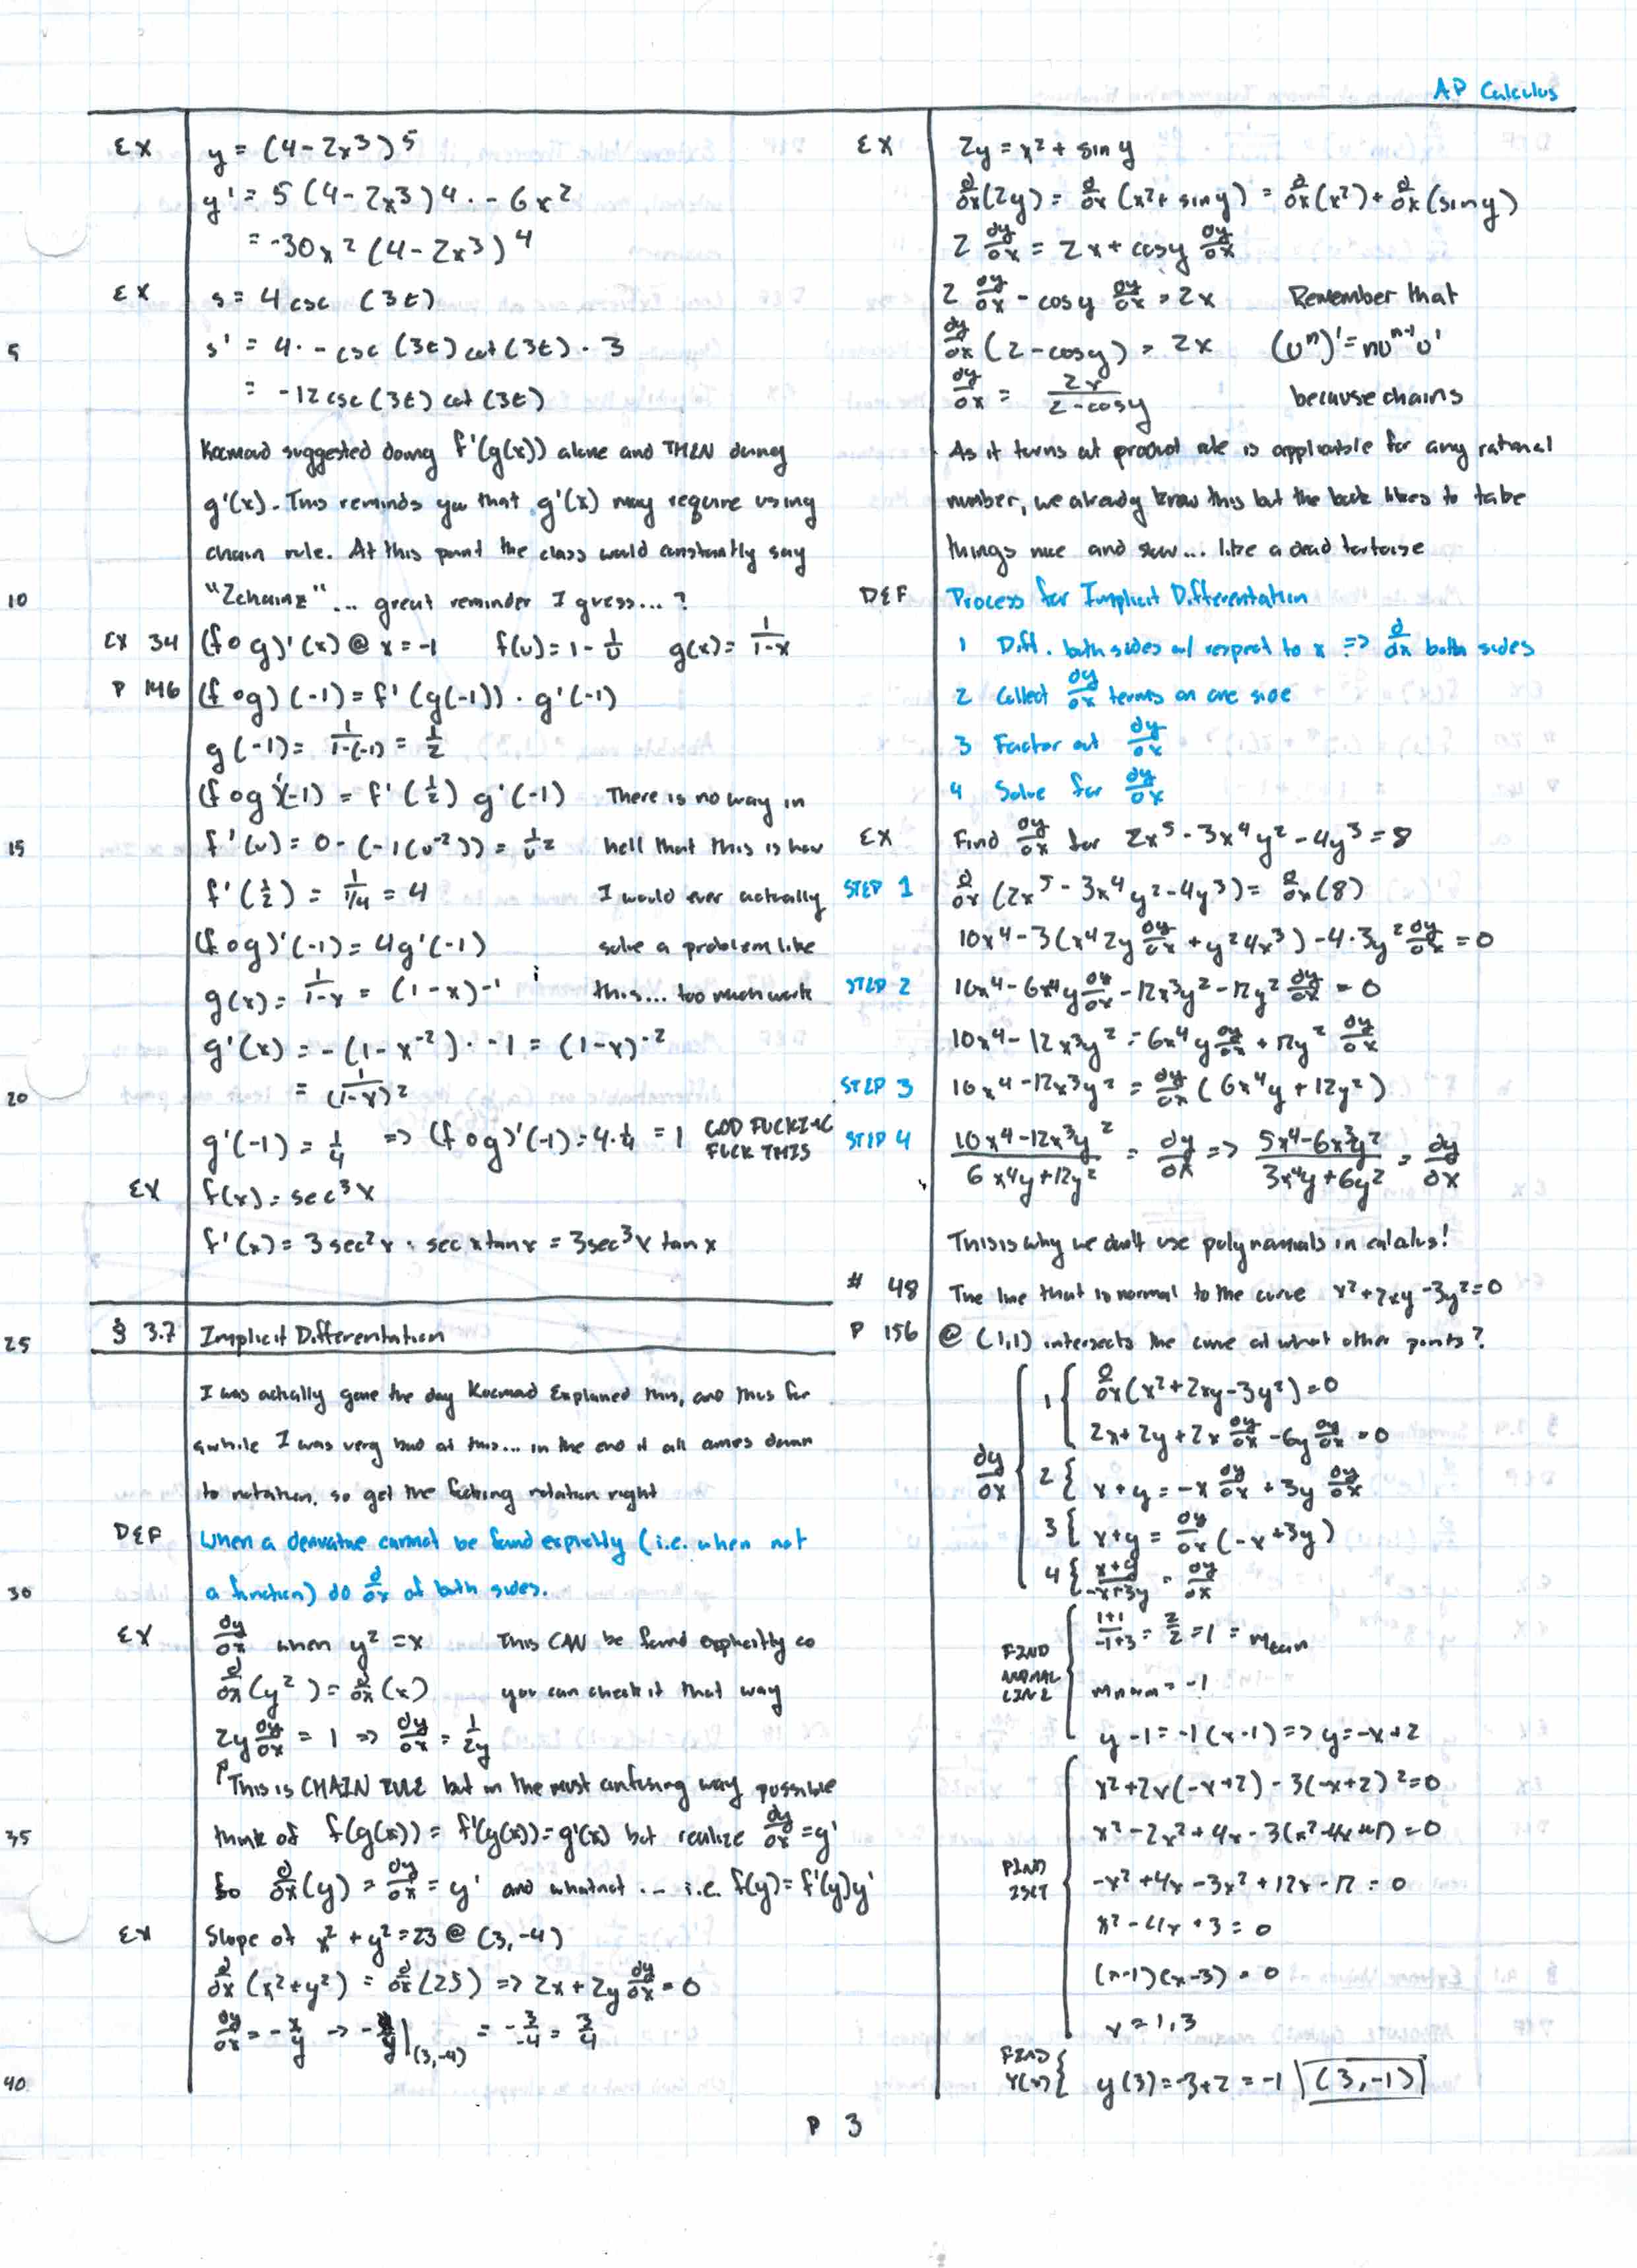 AP Calculus
EX y = (4-2x³)⁵
y' = 5(4-2x³)⁴ · -6x²
= -30x²(4-2x³)⁴
EX s = 4 csc (3t)
5 s' = 4 · -csc(3t)cot(3t) · 3
= -12csc(3t) cot(3t)
Kacmad suggested doing f'(g(x)) alone and THEN doing
g'(x). This reminds you that g'(x) may require using
chain rule. At this point the class would constantly say
10 "2chainz"... great reminder I guess...?
EX 34 (f∘g)'(x) @ x = -1 f(u) = 1 - 1/u g(x) = 1/(1-x)
P 146 (f∘g)(-1) = f'(g(-1)) · g'(-1)
g(-1) = 1/(1-(-1)) = 1/2
(f∘g)'(-1) = f'(1/2) g'(-1) There is no way in
15 f'(u) = 0 - (-1(u⁻²)) = 1/u² hell that this is how
f'(1/2) = 1/(1/4) = 4 I would ever actually
(f∘g)'(-1) = 4g'(-1) solve a problem like
g(x) = 1/(1-x) = (1-x)⁻¹ this... too much work
g'(x) = -(1-x⁻²) · -1 = (1-x)⁻²
20 = (1/(1-x))²
g'(-1) = 1/4 => (f∘g)'(-1) = 4·1/4 = 1 GOD FUCKING
FUCK THIS
EX f(x) = sec³x
f'(x) = 3sec²x · sec x tan x = 3sec³x tan x
25 § 3.7 Implicit Differentation
I was actually gone the day Kacmad Explained this, and thus for
awhile I was very bad at this... in the end it all comes down
to notation, so get the fucking notation right
DEF When a derivative cannot be found explicitly (i.e. when not
30 a function) do d/dx of both sides.
EX dy/dx when y² = x This CAN be found explicitly so
d/dx(y²) = d/dx(x) you can check it that way
2y dy/dx = 1 => dy/dx = 1/2y
↑This is CHAIN RULE but in the most confusing way possible
35 think of f(g(x)) = f'(g(x)) = g'(x) but realize dy/dx = y'
So d/dx(y) = dy/dx = y' and whatnot ... i.e. f(y) = f'(y)y'
EX Slope of x² + y² = 23 @ (3,-4)
d/dx(x²+y²) = d/dx(25) => 2x + 2y dy/dx = 0
dy/dx = -x/y -> -x/y |(3,-4) = -3/-4 = 3/4
40
EX 2y = x² + sin y
d/dx(2y) = d/dx(x² + sin y) = d/dx(x²) + d/dx(sin y)
2 dy/dx = 2x + cos y dy/dx
2 dy/dx - cos y dy/dx = 2x Remember that
dy/dx(2-cos y) = 2x (uⁿ)' = nuⁿ⁻¹u'
dy/dx = 2x/(2-cos y) because chains
As it turns out product rule is applicable for any rational
number, we already know this but the book likes to take
things nice and slow... like a dead tortoise
DEF Process for Implicit Differentation
1 Diff. both sides w/ respect to x => d/dx both sides
2 Collect dy/dx terms on one side
3 Factor out dy/dx
4 Solve for dy/dx
EX Find dy/dx for 2x⁵ - 3x⁴y² - 4y³ = 8
STEP 1 d/dx(2x⁵ - 3x⁴y² - 4y³) = d/dx(8)
10x⁴ - 3(x⁴2y dy/dx + y²4x³) - 4·3y² dy/dx = 0
STEP 2 10x⁴ - 6x⁴y dy/dx - 12x³y² - 12y² dy/dx = 0
10x⁴ - 12x³y² = 6x⁴y dy/dx + 12y² dy/dx
STEP 3 10x⁴ - 12x³y² = dy/dx(6x⁴y + 12y²)
STEP 4 (10x⁴-12x³y²)/(6x⁴y+12y²) = dy/dx => (5x⁴-6x³y²)/(3x⁴y+6y²) = dy/dx
This is why we don't use polynomials in calculus!
# 48 The line that is normal to the curve x²+2xy-3y²=0
P 156 @ (1,1) intersects the curve at what other points?
dy/dx
1 { d/dx(x²+2xy-3y²) = 0
2x + 2y + 2x dy/dx - 6y dy/dx = 0
2 { x+y = -x dy/dx + 3y dy/dx
3 { x+y = dy/dx(-x+3y)
4 { (x+y)/(-x+3y) = dy/dx
FIND NORMAL LINE
(1+1)/(-1+3) = 2/2 = 1 = m tan
m norm = -1
y-1 = -1(x-1) => y = -x+2
FIND ISCT
x²+2x(-x+2) - 3(-x+2)² = 0
x² - 2x² + 4x - 3(x²-4x+4) = 0
-x² + 4x - 3x² + 12x - 12 = 0
x² - 4x + 3 = 0
(x-1)(x-3) = 0
x = 1,3
FIND Y(x) { y(3) = -3+2 = -1 (3,-1)
P 3